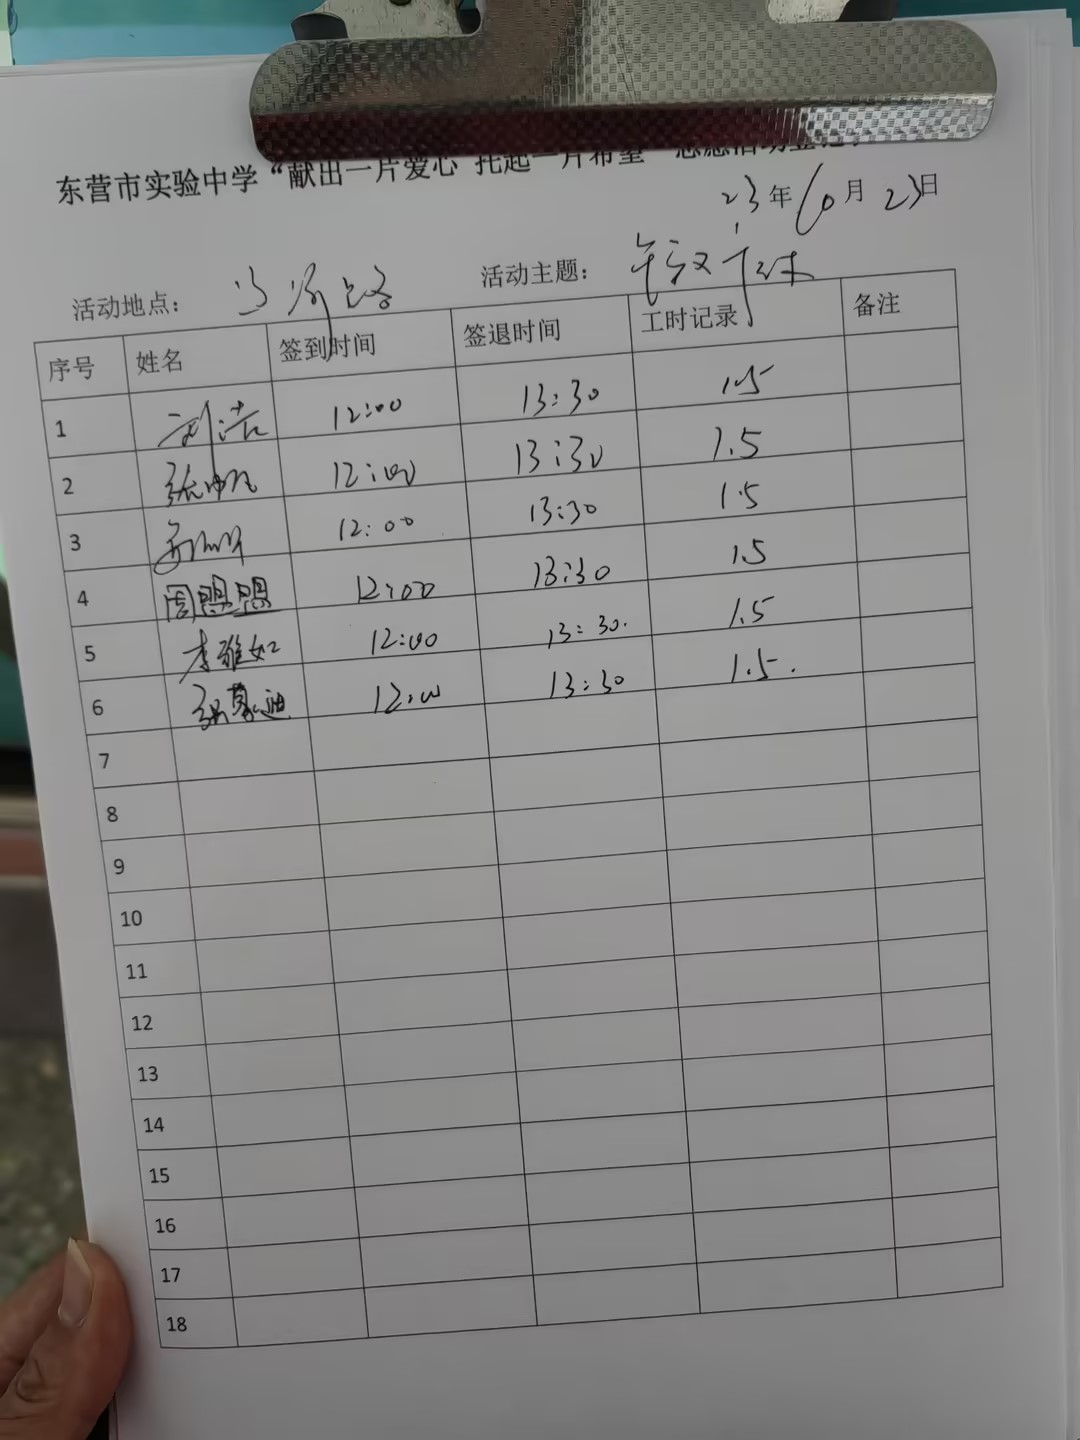 东营市实验中学“献出一片爱心 托起一片希望”志愿活动登记
23年10月23日
活动地点： 活动主题：
序号 姓名 签到时间 签退时间 工时记录 备注
1 刘洁 12:00 13:30 1.5
2 张 12:00 13:30 1.5
3 12:00 13:30 1.5
4 周盟盟 12:00 13:30 1.5
5 李雅如 12:00 13:30. 1.5
6 张 迪 12:00 13:30 1.5.
7
8
9
10
11
12
13
14
15
16
17
18